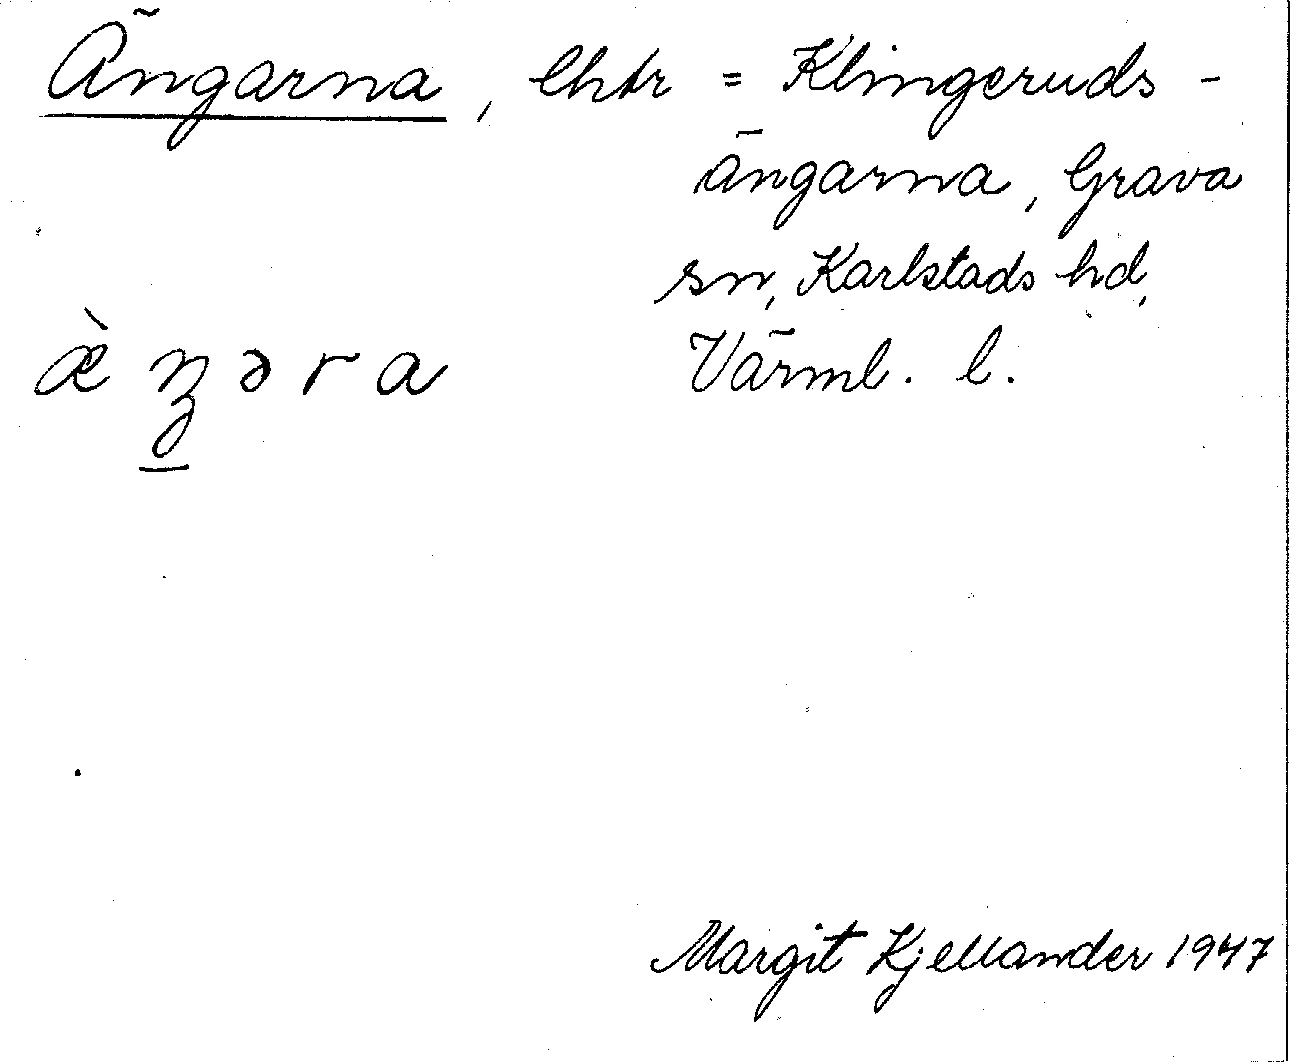 Ängarna, lhtr = Klingeruds-
ängarna, Grava
sn, Karlstads hd,
æ̀ŋəra Värml. l.
Margit Kjellander 1947